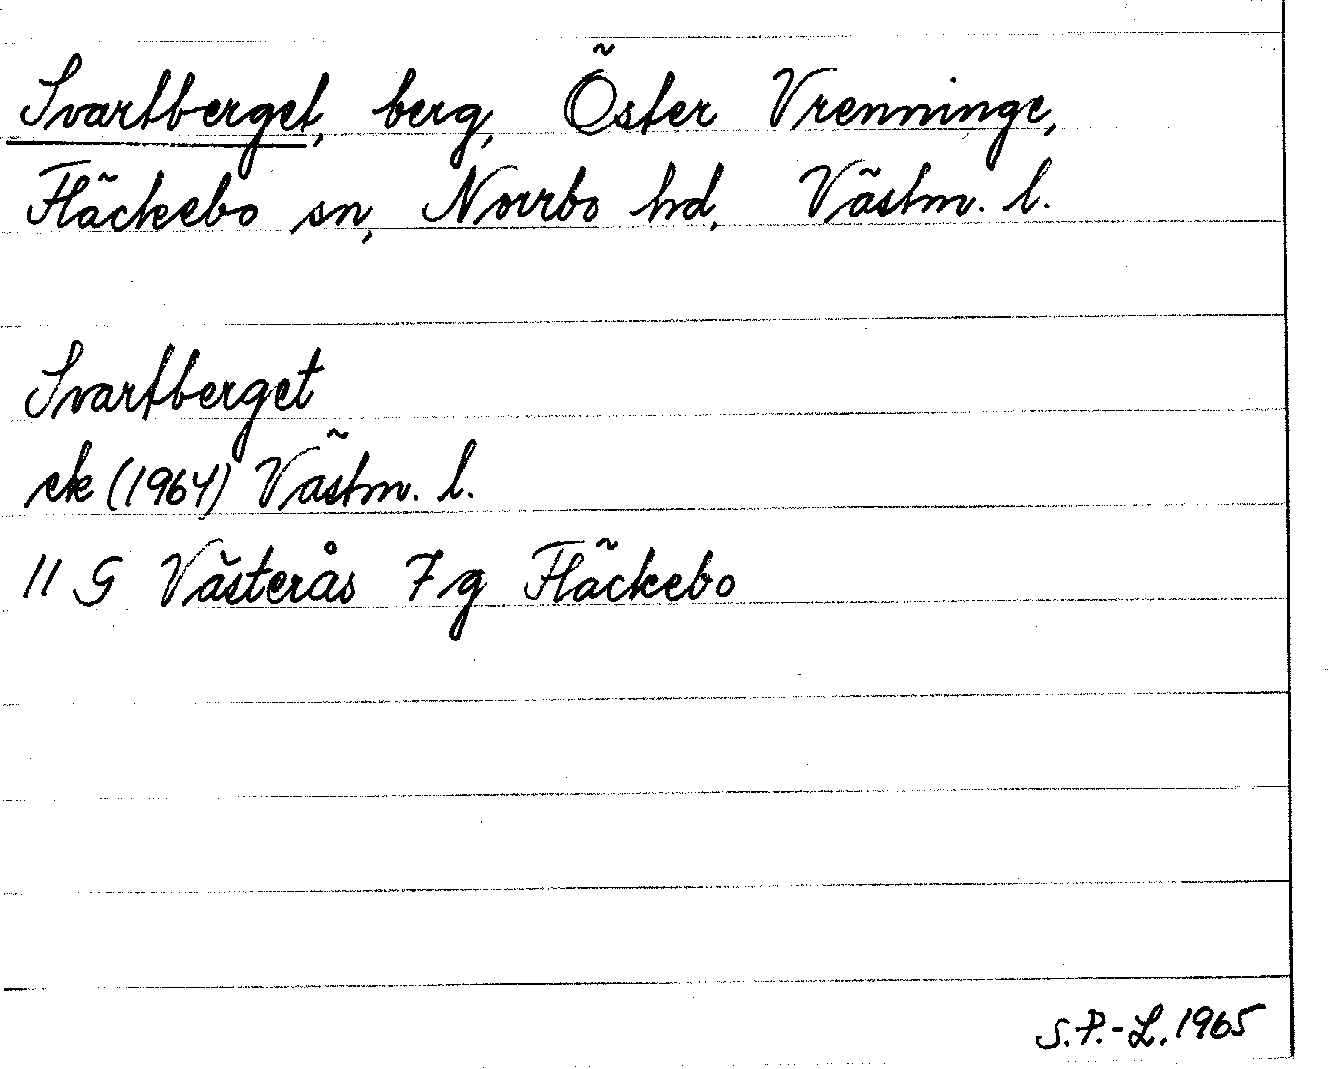 Svartberget, berg, Öster Vrenninge,
Fläckebo sn, Norrbo hd, Västm. l.
Svartberget
ek (1964) Västm. l.
11 G Västerås 7 g Fläckebo
S.P.-L. 1965